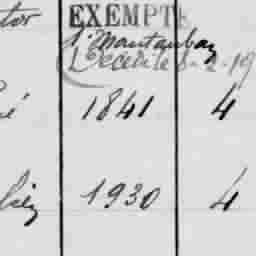 tor EXEMPTÉ
s/ Montauban
Décédé le 8-2-19
é 1841 4
1930 4